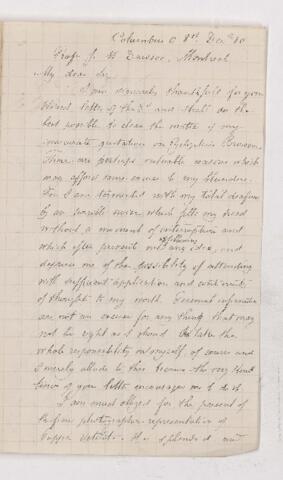 Columbus O 8th Dec. 80
Prof. J. W. Dawson, Montreal
My dear Sir,
I am sincerely thankful for your
kindest letter of the and shall do the
best possible to clear the matter of my
inaccurate quotation on
There are perhaps valuable reasons which
may afford some excuse to my blunders.
For I am tormented with my total deafness
by an noise which fills my head
without a moment of interruption and
which often prevents me obtaining any idea, and
deprives me of the possibility of attending
with sufficient application and continuity
of thought to my work. Personal infirmities
are not an excuse for any thing that may
not be right as it should. I take the
whole responsibility on myself, of course and
I merely allude to this because the very kind
tenor of your letter encourages me to do it.
I am most obliged for the present of
the fine photographic representation of
It is splendid and